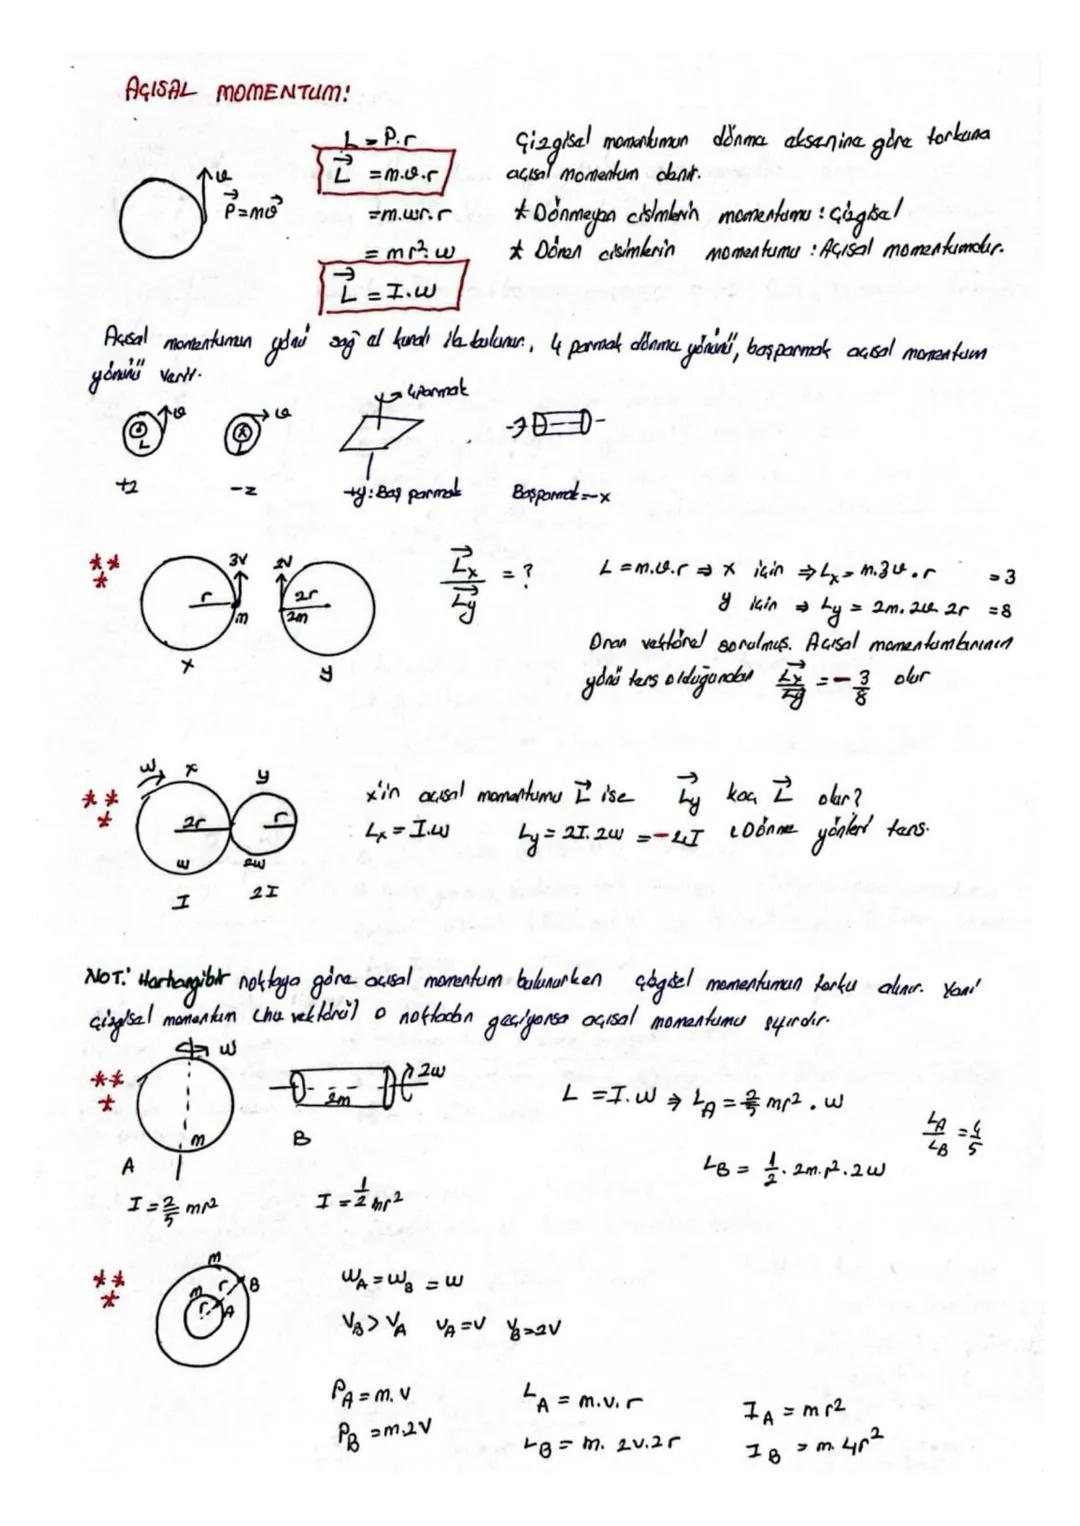 AÇISAL MOMENTUM:
L = P.r
L = m.v.r
= m.wr.r
= mr². w
L = I.w
v
P = mv
Çizgisel momentumun dönme eksenine göre torkuna
açısal momentum denir.
* Dönmeyen cisimlerin momentumu : Çizgisel
* Dönen cisimlerin momentumu : Açısal momentumdur.
Açısal momentumun yönü sağ el kuralı ile bulunur, 4 parmak dönme yönünü, başparmak açısal momentum
yönünü verir.
v L v L 4 parmak
+z -z +y: Baş parmak Başparmak = -x
** *
r 3V m x
2V 2r 2m y
Lx / Ly = ?
L = m.v.r ⇒ x için ⇒ Lx = m.3v.r = 3
y için ⇒ Ly = 2m. 2v. 2r = 8
Oran vektörel sorulmuş. Açısal momentumlarının
yönü ters olduğundan Lx / Ly = - 3/8 olur
** *
w x y
2r r
w 2w
I 2I
x'in açısal momentumu L ise Ly kaç L olur?
Lx = I.w Ly = 2I.2w = -4I Dönme yönleri ters.
NOT: Herhangibir noktaya göre açısal momentum bulunurken çizgisel momentumun torku alınır. Yani
çizgisel momentum (hız vektörü) o noktadan geçiyorsa açısal momentumu sıfırdır.
** *
w 2w
m 2m
A B
I = 2/5 mr² I = 1/2 mr²
L = I.w ⇒ LA = 2/5 mr². w
LB = 1/2. 2m.r². 2w
LA / LB = 4/5
** *
m m r r A B
wA = wB = w
VB > VA VA = V VB = 2V
PA = m.V LA = m.v.r IA = mr²
PB = m.2V LB = m. 2v.2r IB = m. 4r²